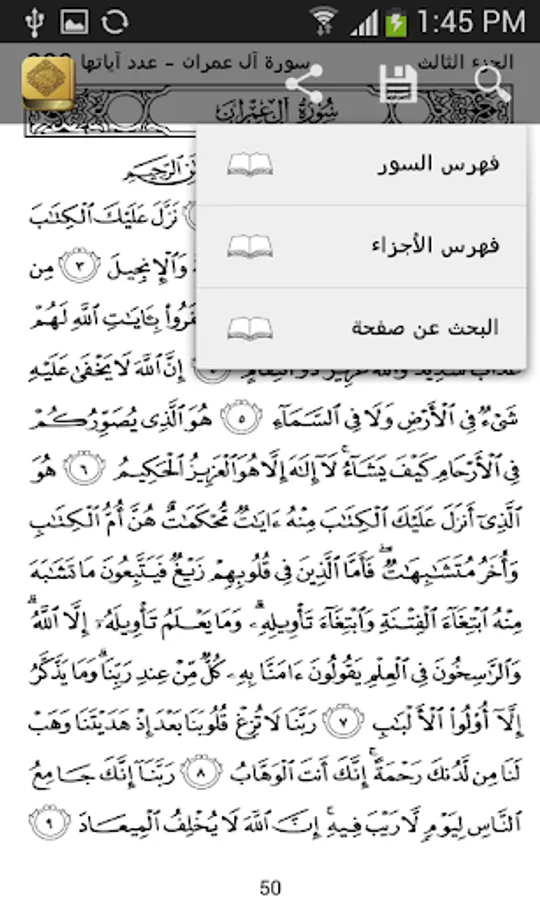 1:45 PM
الجزء الثالث
سورة آل عمران - عدد آياتها
سُورَةُ آلِ عِمْرَانَ
فهرس السور
فهرس الأجزاء
البحث عن صفحة
الرَّحِيمِ
نَزَّلَ عَلَيْكَ الْكِتَابَ
وَالْإِنجِيلَ ٣ مِن
بِـَٔايَاتِ اللَّهِ لَهُمْ
عَذَابٌ شَدِيدٌ وَاللَّهُ عَزِيزٌ ذُو انتِقَامٍ إِنَّ اللَّهَ لَا يَخْفَىٰ عَلَيْهِ
شَىْءٌ فِى الْأَرْضِ وَلَا فِى السَّمَآءِ ٥ هُوَ الَّذِى يُصَوِّرُكُمْ
فِى الْأَرْحَامِ كَيْفَ يَشَآءُ ۚ لَآ إِلَٰهَ إِلَّا هُوَ الْعَزِيزُ الْحَكِيمُ ٦ هُوَ
الَّذِىٓ أَنزَلَ عَلَيْكَ الْكِتَابَ مِنْهُ ءَايَاتٌ مُّحْكَمَاتٌ هُنَّ أُمُّ الْكِتَابِ
وَأُخَرُ مُتَشَابِهَاتٌ ۖ فَأَمَّا الَّذِينَ فِى قُلُوبِهِمْ زَيْغٌ فَيَتَّبِعُونَ مَا تَشَابَهَ
مِنْهُ ابْتِغَآءَ الْفِتْنَةِ وَابْتِغَآءَ تَأْوِيلِهِۦ ۗ وَمَا يَعْلَمُ تَأْوِيلَهُۥٓ إِلَّا اللَّهُ ۗ
وَالرَّاسِخُونَ فِى الْعِلْمِ يَقُولُونَ ءَامَنَّا بِهِۦ كُلٌّ مِّنْ عِندِ رَبِّنَا ۗ وَمَا يَذَّكَّرُ
إِلَّآ أُوْلُوا۟ الْأَلْبَابِ ٧ رَبَّنَا لَا تُزِغْ قُلُوبَنَا بَعْدَ إِذْ هَدَيْتَنَا وَهَبْ
لَنَا مِن لَّدُنكَ رَحْمَةً ۚ إِنَّكَ أَنتَ الْوَهَّابُ ٨ رَبَّنَآ إِنَّكَ جَامِعُ
النَّاسِ لِيَوْمٍ لَّا رَيْبَ فِيهِ ۚ إِنَّ اللَّهَ لَا يُخْلِفُ الْمِيعَادَ ٩
50